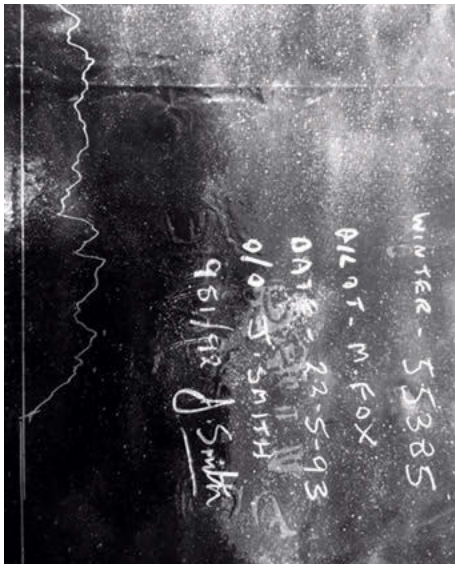 WINTER - 55385
PILOT - M. FOX
DATE - 23-5-93
O/O J. SMITH
951/92 J Smith